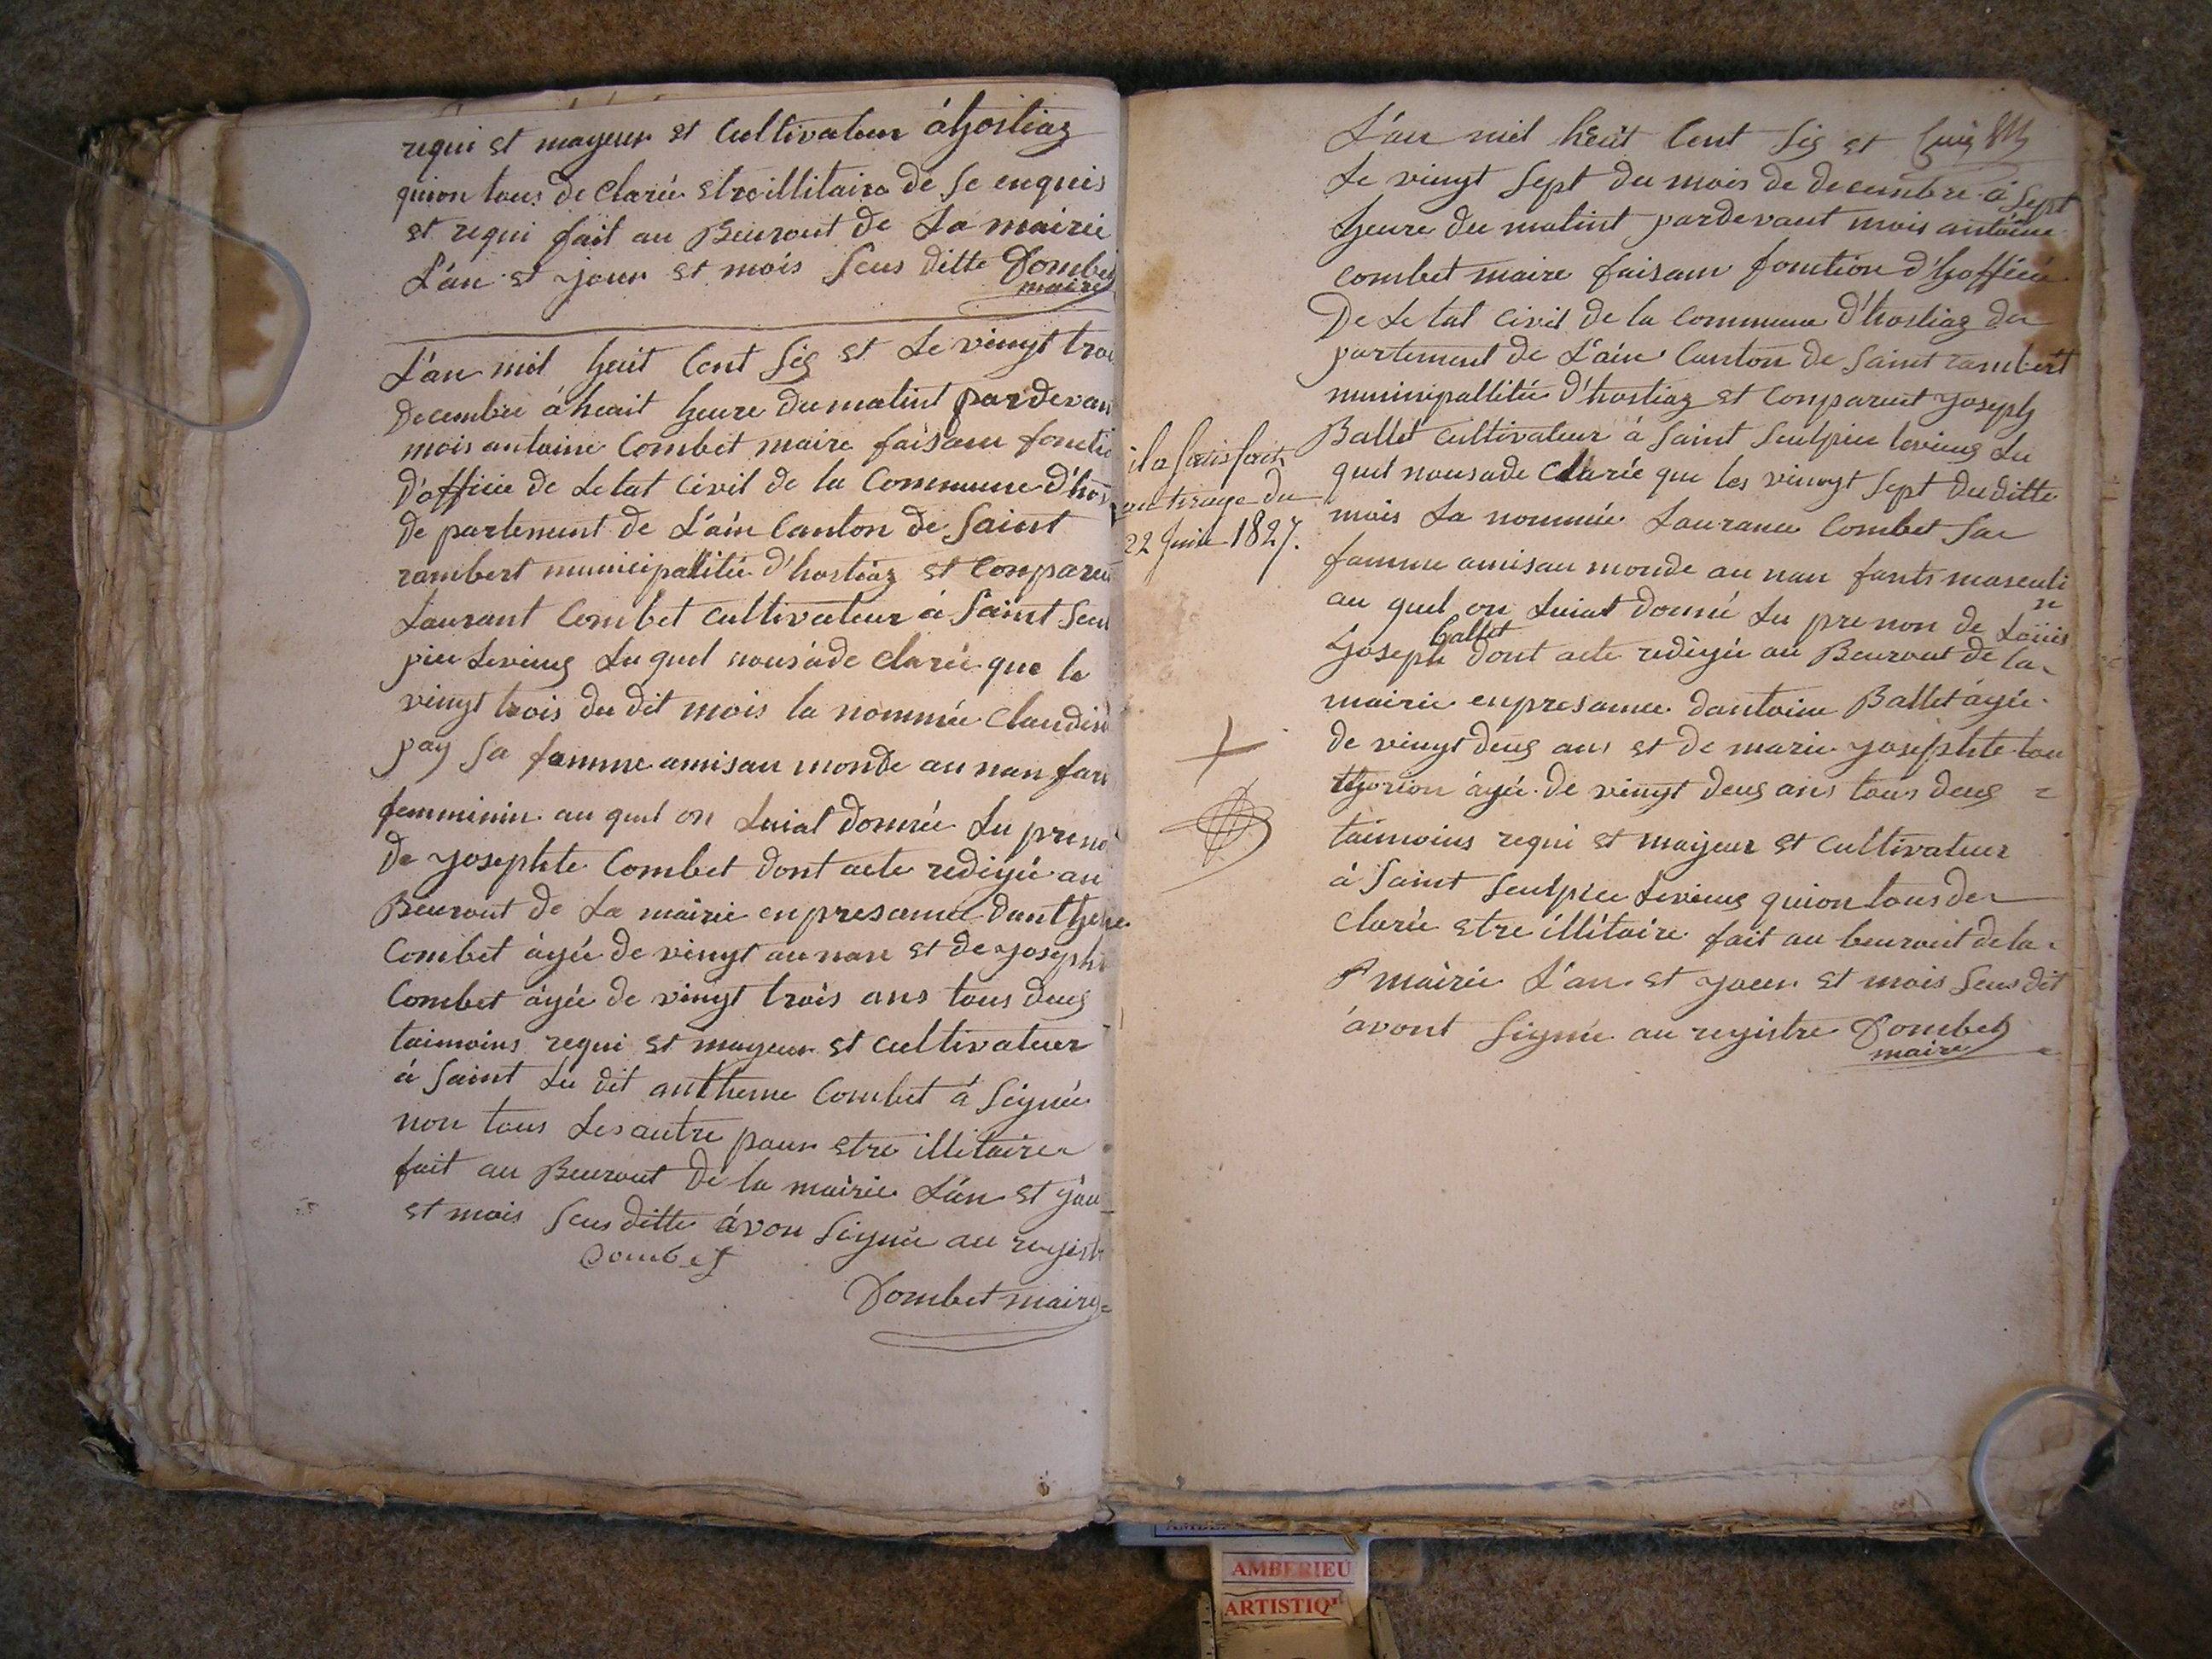 requi et mayeur et Cultivateur áhostiaz
quion tous de Clarée etre illitaire de Se enquis
et requi fait au Beurout de La mairie
L'an et jour et mois Sus ditte Combet
maire
L'an mil heuit Cent Sis et Le vingt troi
Decembre á heuit heure du matint pardevan
mois antoine Combet maire faisam foncti
D'officie de Letat Civil de la Commune D'hos
de partement de L'ain Canton de Saint
rambert municipallitée d'hostiaz et Comparеu
Laurant Combet Cultivateur á Saint Seul
pieu Levieus Lu quel nousáde Clarée que le
vingt trois du dit mois la nommée Claudin
pay Sa famme amisau monde au nan fan
femminin au quel on Luiat donnée Lu preno
de Josephte Combet dont acte redigée au
Beurout de La mairie enpresamce danthelme
Combet áyée de vingt au nan et de Joseph
Combet áyée de vingt trois ans tous deus
taimoins requi et mayeur et Cultivateur
á Saint Lu dit anthelme Combet á Signée
non tous Les autre pour etre illitaire
fait au Beurout de la mairie L'an et jou
et mois Sus ditte ávon Signée au registr
Combet
Combet maire
L'an mil heuit Cent Sis et
Le vingt Sept du mois de decembre á Sept
heure du matint pardevant mois antoine
Combet maire faisam fonction d'hofficie
De Le tat Civil de la Commune d'hostiaz de
partement de L'ain Canton de Saint rambert
municipallitée d'hostiaz et Conparеut Joseph
Ballet Cultivateur á Saint Seulpieu levieus Lu
quel nousade Clarée que les vingt Sept duditte
mois La nommée Lauranсe Combet Sa
famme amisau monde au nan fants masculi
n
au quel on Luiat donné Lu prenon de Loüis
Ballet
Joseph dont acte redigée au Beurout de la
mairie enpresamce dantoine Ballet áyée
de vingt deus ans et de marie Josephte tou
thorion áyée de vingt deus ans tous deus =
taimoins requi et mayeur et Cultivateur
á Saint Seulpieu Levieus quion tous de
Clarée etre illitaire fait au beurout de la
mairie L'an et jour et mois Sus dit
ávont Signée au registre Combet
maire
il a satisfait
au tirage du
22 Juin 1827.
AMBERIEU
ARTISTIQ